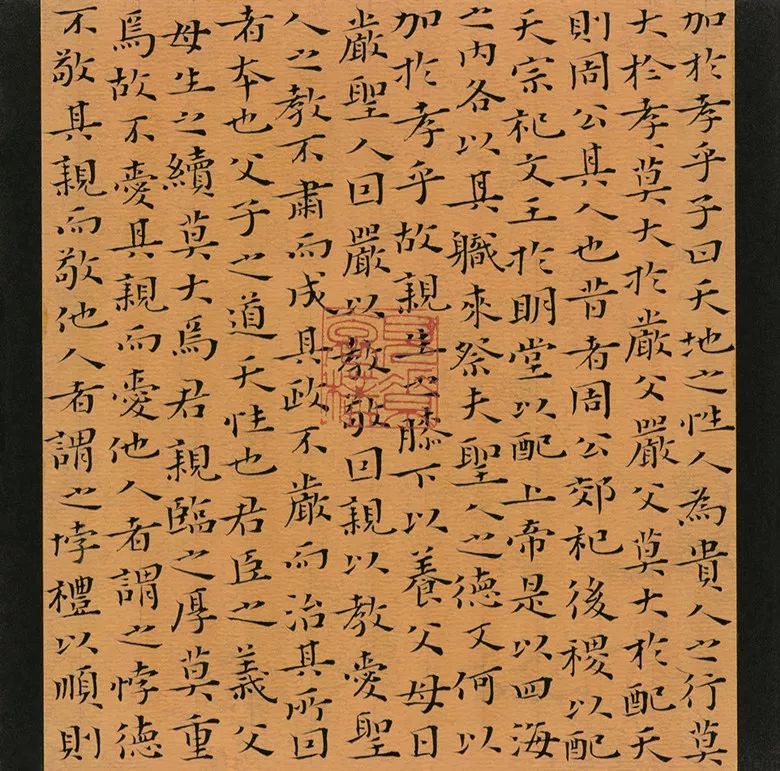 加於孝乎子曰天地之性人為貴人之行莫
大於孝莫大於嚴父嚴父莫大於配天
則周公其人也昔者周公郊祀後稷以配
天宗祀文王於明堂以配上帝是以四海
之內各以其職來祭夫聖人之德又何以
加於孝乎故親生之膝下以養父母日
嚴聖人因嚴以教敬因親以教愛聖
人之教不肅而成其政不嚴而治其所因
者本也父子之道天性也君臣之義父
母生之續莫大焉君親臨之厚莫重
焉故不愛其親而愛他人者謂之悖德
不敬其親而敬他人者謂之悖禮以順則